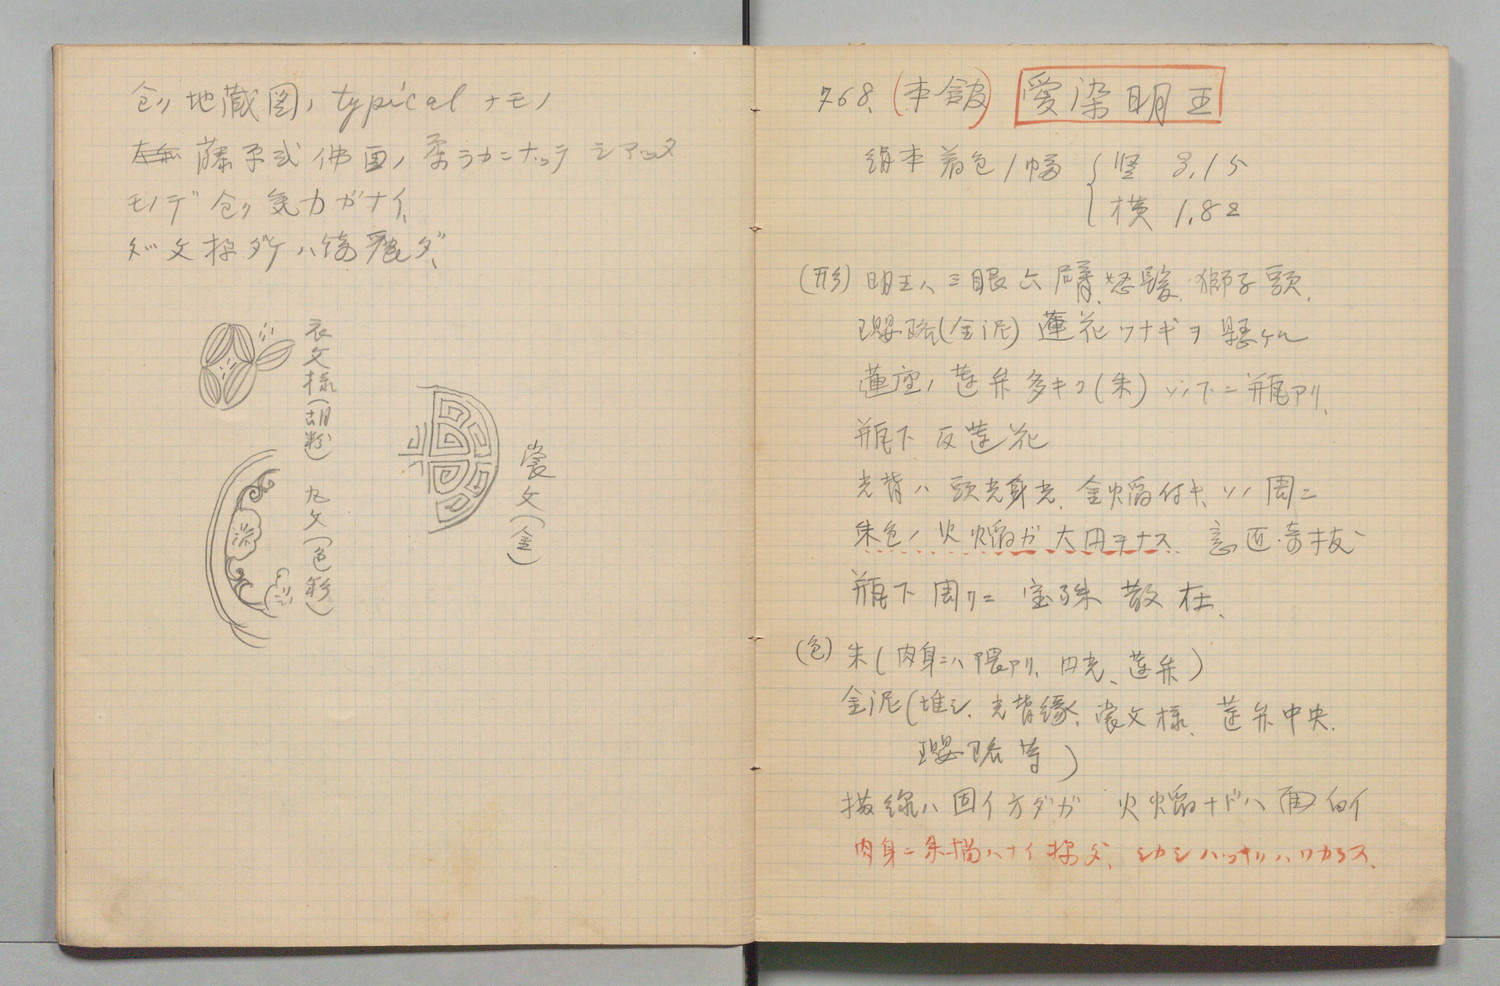 地蔵図ノ typical ナモノ
藤原式佛画ノ柔ラカニナッテシマッタ
モノデ 気力ガナイ、
文様ダケハ綺麗ダ、
衣文様(胡粉)
丸文(色彩)
裳文(金)
768. (本舘) 愛染明王
絹本着色1幅 竪 3,15
横 1,82
(形) 明王ハ三眼六臂、怒髪、獅子頭、
瓔珞(金泥) 蓮花ツナギヲ懸ケル
蓮座ノ蓮弁多キク(朱) ソノ下ニ瓶アリ、
瓶下 反蓮花
光背ハ頭光身光、金焔付キ、ソノ周ニ
朱色ノ火焔ガ大円ヲナス、意匠奇抜
瓶下周リニ宝珠散在、
(色) 朱(肉身ニハ隈アリ、円光、蓮弁)
金泥(堆シ、光背縁、裳文様、蓮弁中央、
瓔珞等)
描線ハ固イ方ダガ 火焔ナドハ面白イ
肉身ニ朱描ハナイ様ダ、シカシハッキリハワカラス、